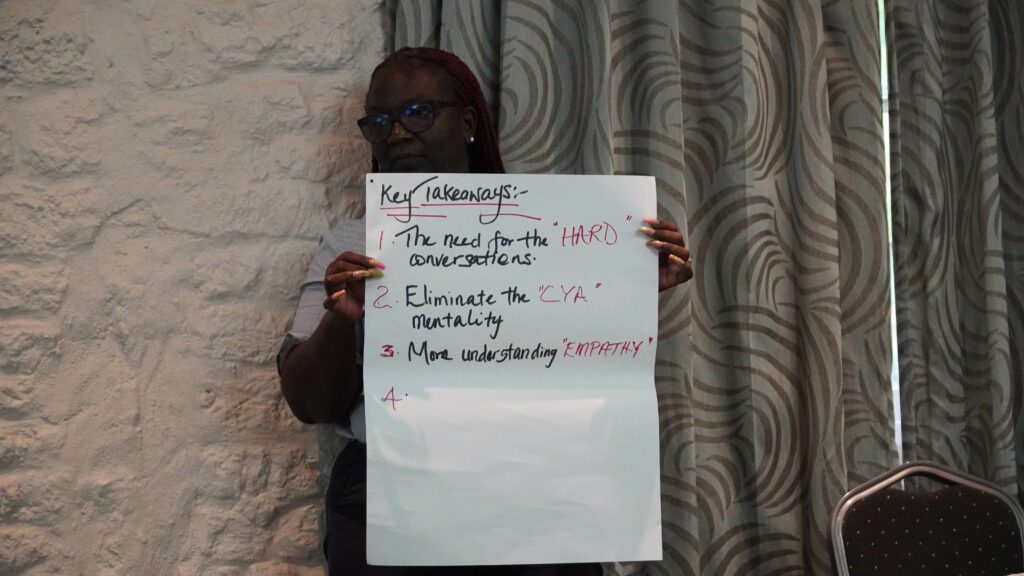 Key Takeaways:-
1. The need for the "HARD"
conversations.
2. Eliminate the "CYA"
mentality
3. More understanding "EMPATHY"
4.